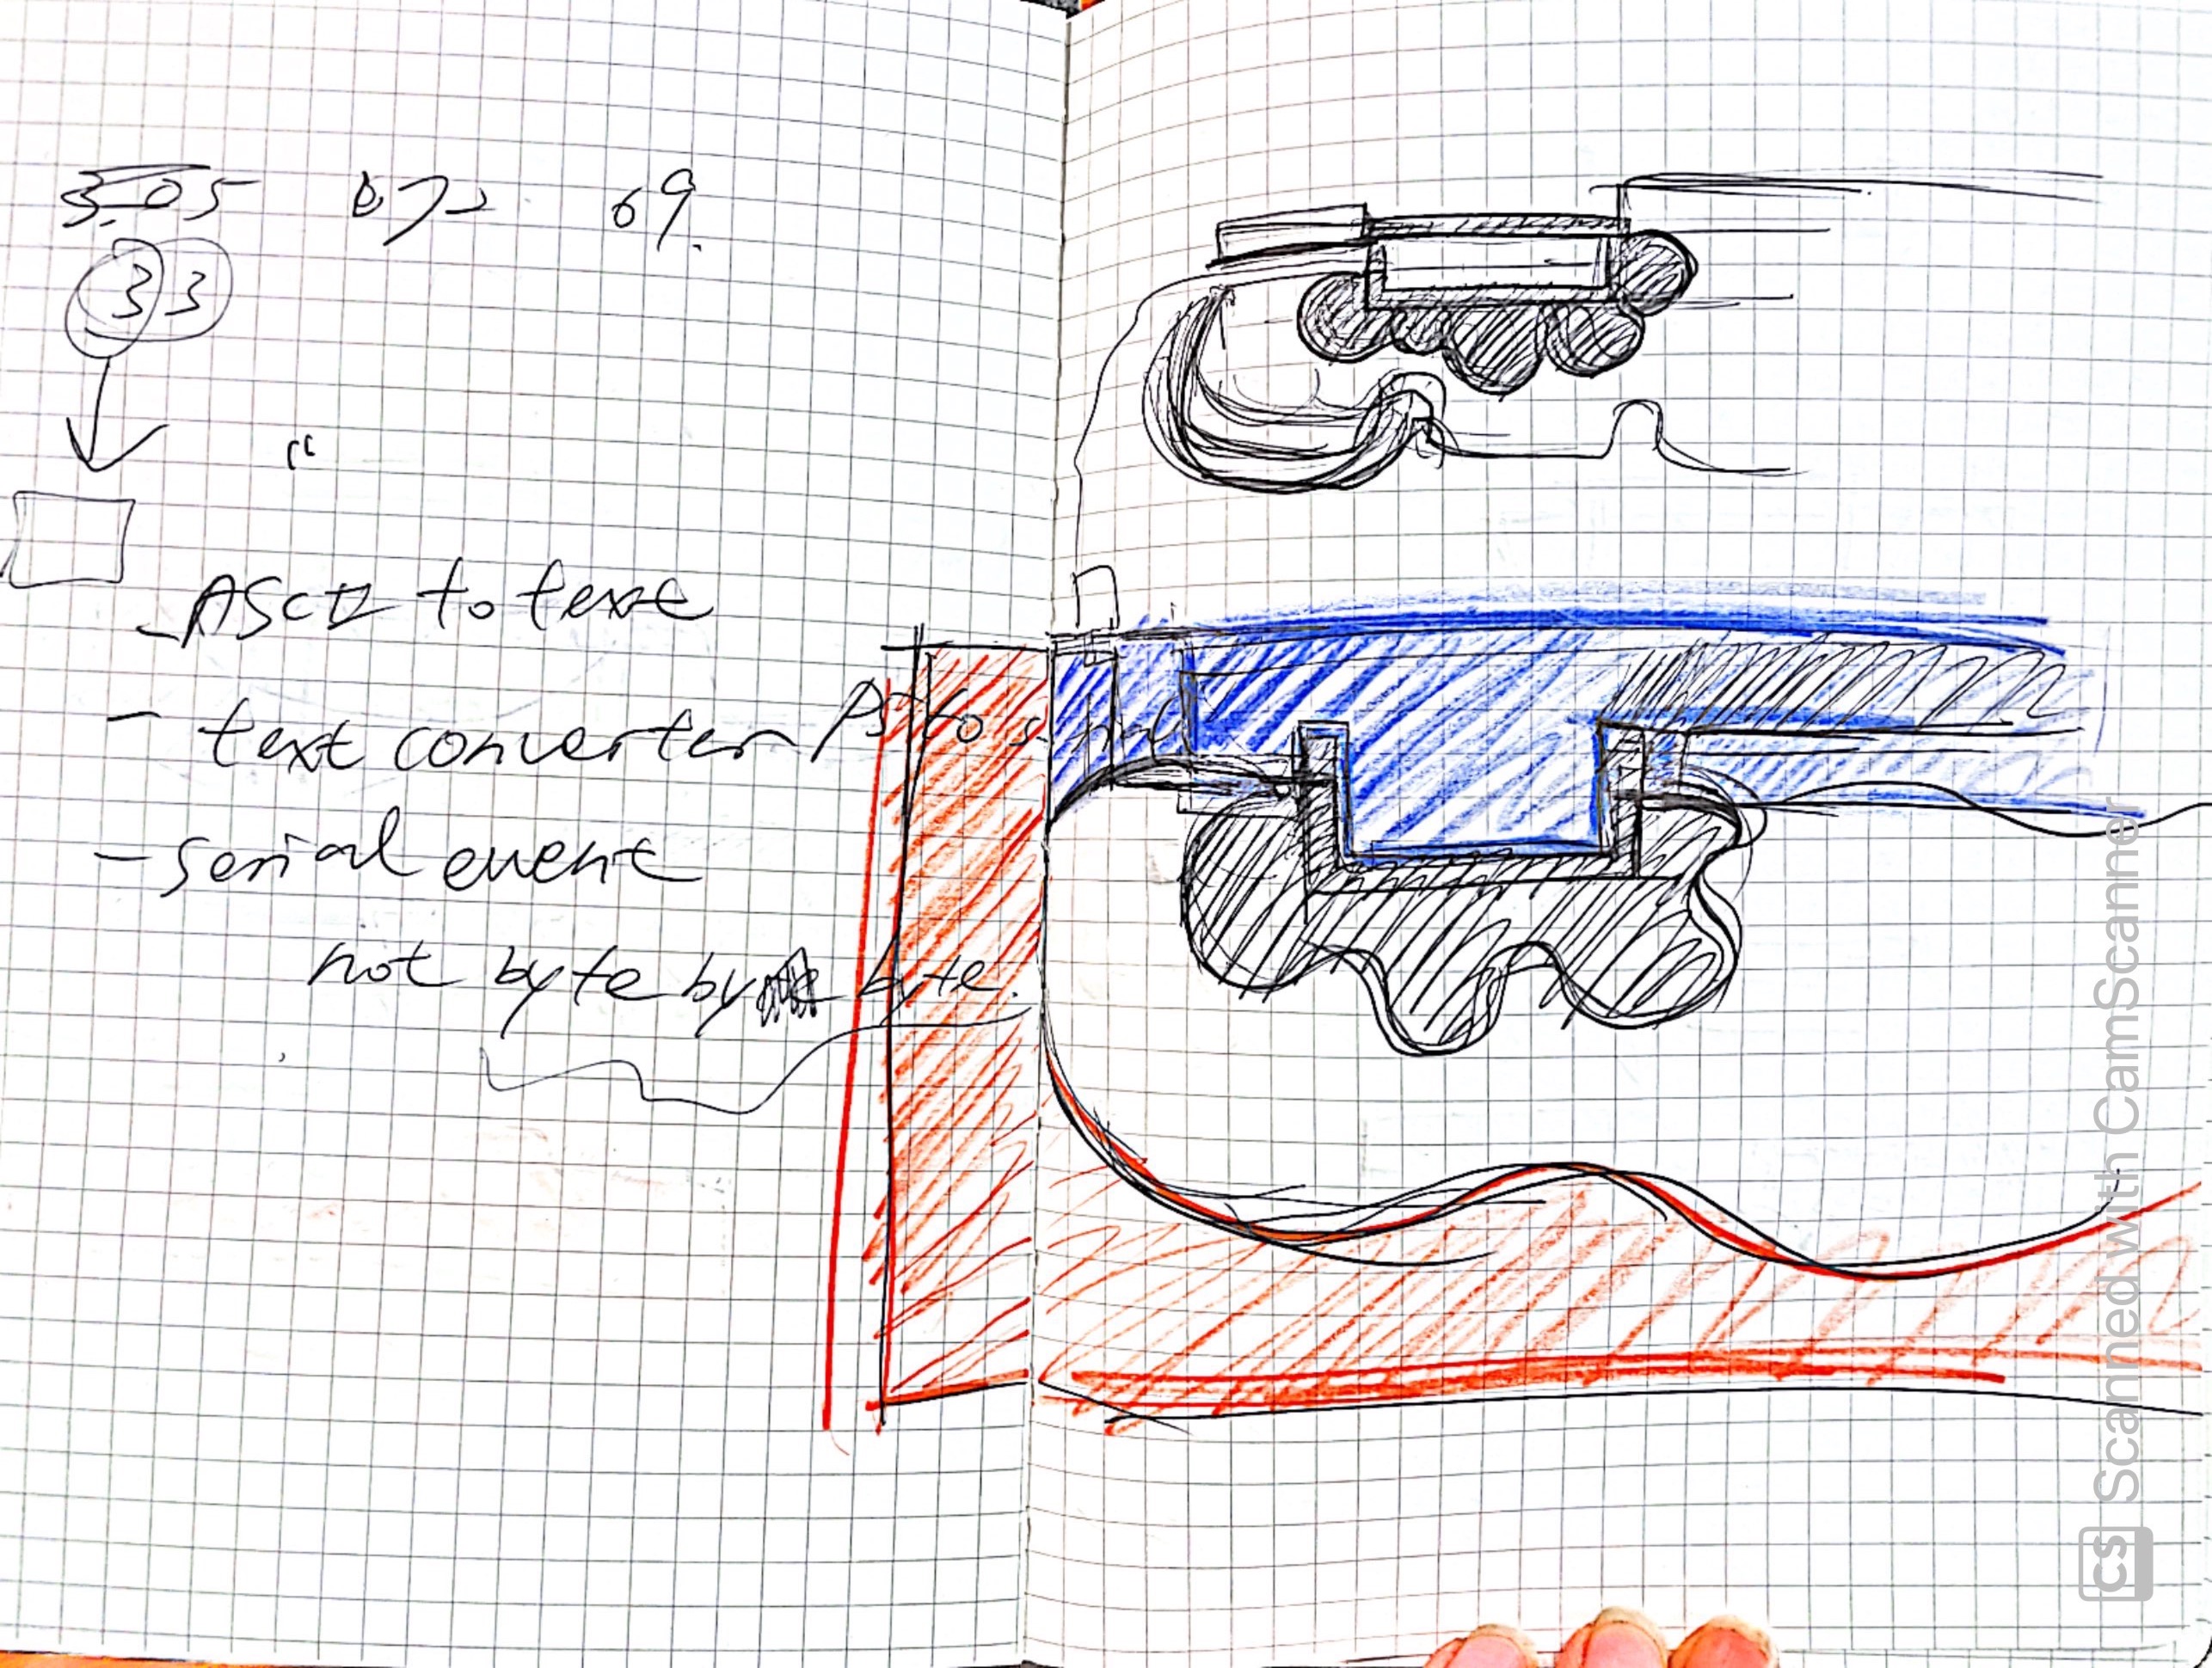 3.05 69.
33
"
- ASCII to text
- text converter to serial
- serial event
not byte by byte.
CS Scanned with CamScanner